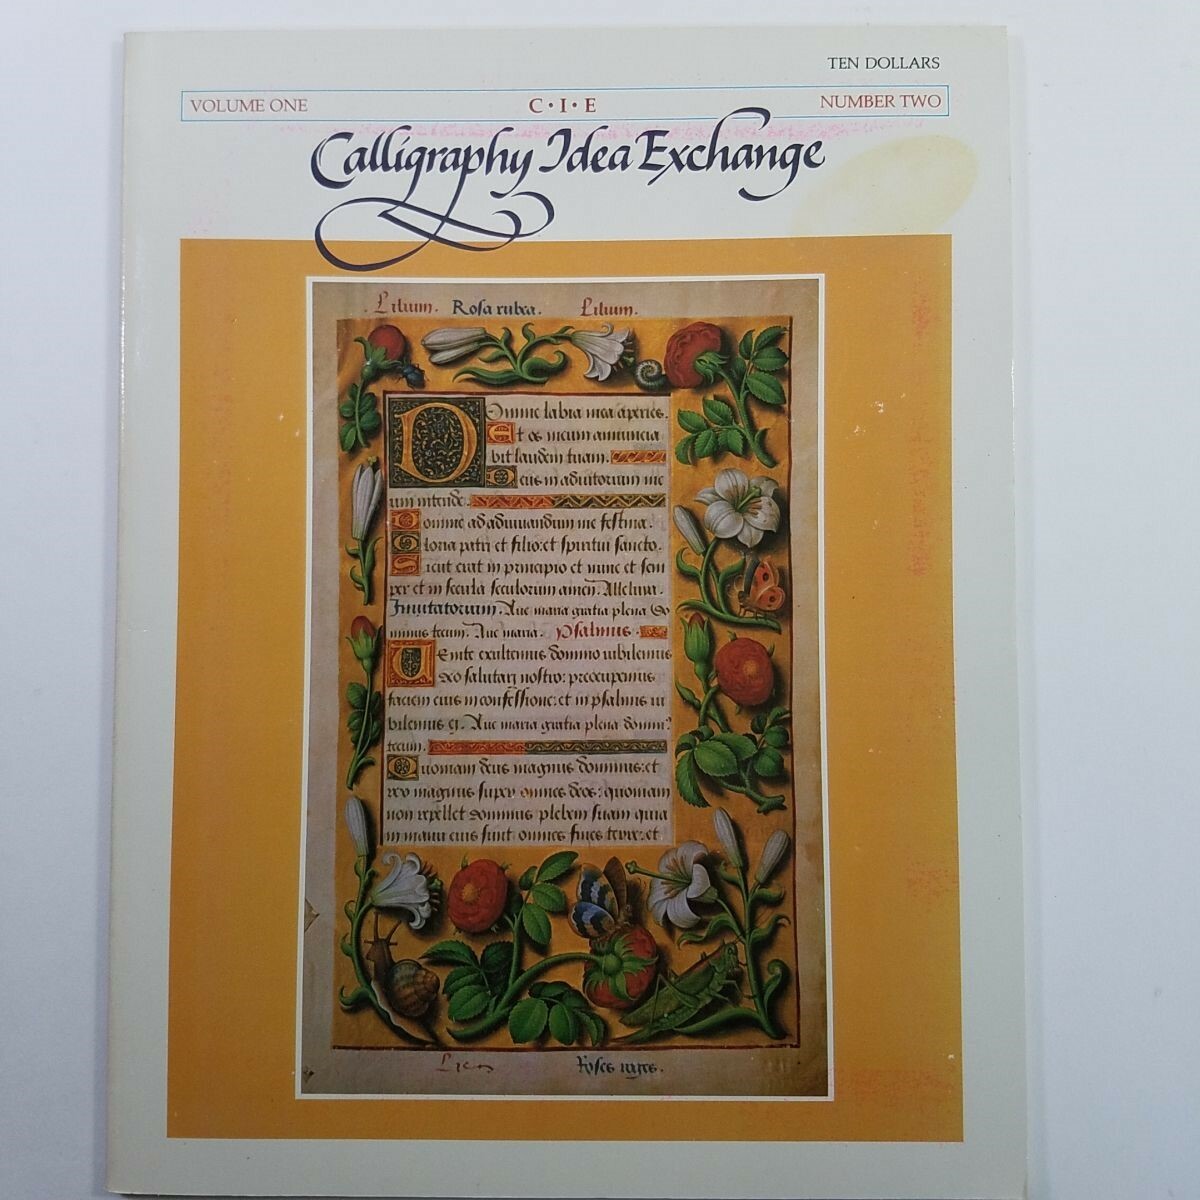 TEN DOLLARS
VOLUME ONE
C·I·E
NUMBER TWO
Calligraphy Idea Exchange
Lilium. Rosa rubra. Lilium.
Domine labia mea aperies.
Et os meum annuncia
bit laudem tuam.
Deus in adiutorium me
um intende.
Domine ad adiuuandum me festina.
Gloria patri et filio: et spiritui sancto.
Sicut erat in principio et nunc et sem
per et in secula seculorum amen. Alleluia.
Inuitatorium. Aue maria gratia plena Do
minus tecum. Aue maria. Psalmus.
Uenite exultemus domino iubilemus
deo salutari nostro: preoccupemus
faciem eius in confessione: et in psalmis iu
bilemus ei. Aue maria gratia plena domin9
tecum.
Quoniam deus magnus dominus: et
rex magnus super omnes deos: quoniam
non repellet dominus plebem suam quia
in manu eius sunt omnes fines terre: et
Roses